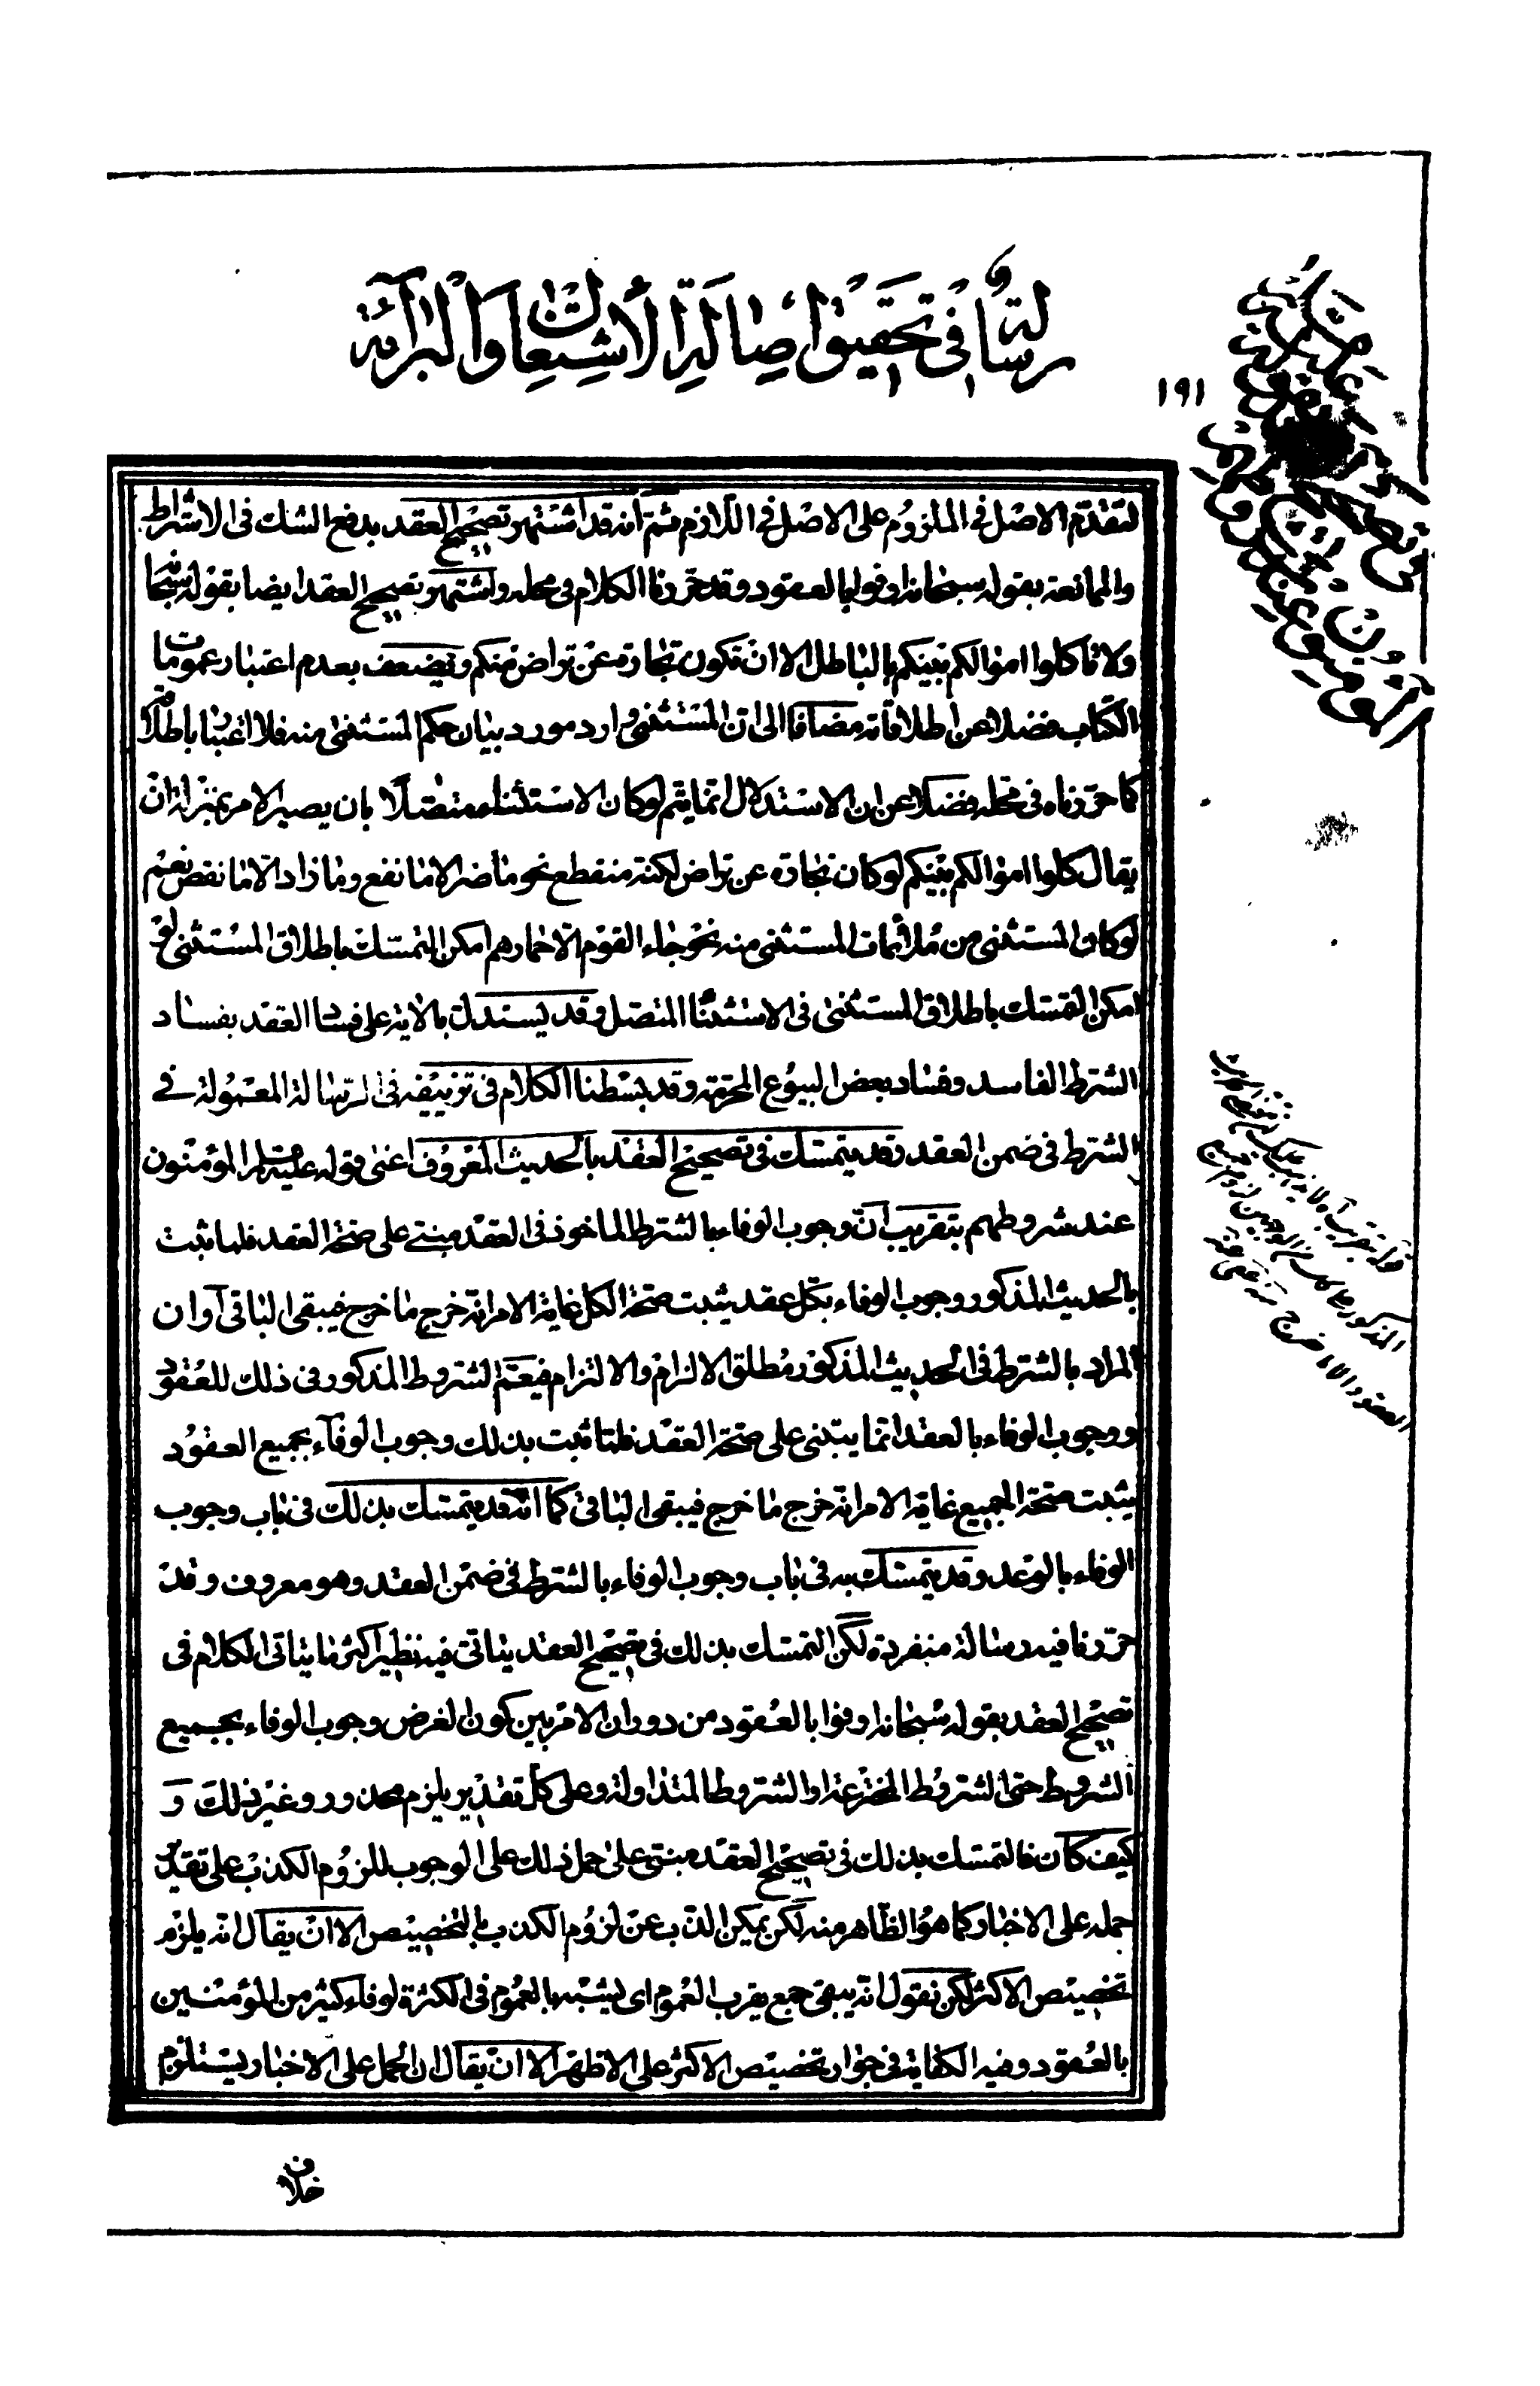 رسالة في تحقيق اصالة الاشتغال والبرائة
١٩١
لتقدّم الاصل في الملزوم على الاصل في اللازم ثمّ انه قد اشتهر تصحيح العقد بدفع الشك في الاشتراط
والممانعة بقوله سبحانه اوفوا بالعقود وقد حررنا الكلام في محله واشتهر تصحيح العقد ايضا بقوله سبحانه
ولا تأكلوا اموالكم بينكم بالباطل الا ان تكون تجارة عن تراض منكم ويضعف بعدم اعتبار عمومات
الكتاب فضلا عن اطلاقاته مضافا الى ان المستثنى وارد مورد بيان حكم المستثنى منه فلا اعتبار باطلاقه
كما حرّرناه في محله فضلا عن ان الاستدلال انما يتم لو كان الاستثناء متصلا بان يصير الامر بمنزلة ان
يقال كلوا اموالكم بينكم لو كان تجارة عن تراض لكنه منقطع نحو ما ضر الا ما نفع وما زاد الا ما نقص نعم
لو كان المستثنى من ملائمات المستثنى منه نحو جاء القوم الا حمارهم امكن التمسك باطلاق المستثنى لو
امكن التمسك باطلاق المستثنى في الاستثناء المتصل وقد يستدل بالاية على فساد العقد بفساد
الشرط الفاسد وفساد بعض البيوع المحرمة وقد بسطنا الكلام في تزييفه في الرسالة المعمولة في
الشرط في ضمن العقد وقد يتمسك في تصحيح العقد بالحديث المعروف اعنى قوله عليه السلام المؤمنون
عند شروطهم بتقريب انّ وجوب الوفاء بالشرط الماخوذ في العقد مبتنى على صحة العقد فلما ثبت
بالحديث المذكور وجوب الوفاء بكل عقد يثبت صحة الكل غاية الامر انه خرج ما خرج فيبقى الباقى او ان
المراد بالشرط في الحديث المذكور مطلق الالزام والالتزام فيعم الشروط المذكور في ذلك للعقود
ووجوب الوفاء بالعقد انما يبتنى على صحة العقد فلما ثبت بذلك وجوب الوفاء بجميع العقود
يثبت صحة الجميع غاية الامر انه خرج ما خرج فيبقى الباقى كما انه قد يتمسك بذلك في باب وجوب
الوفاء بالوعد وقد يتمسك به في باب وجوب الوفاء بالشرط في ضمن العقد وهو معروف وقد
حرّرنا فيه رسالة منفردة لكن التمسك بذلك في تصحيح العقد يتاتى فيه نظير اكثر ما يتاتى الكلام في
تصحيح العقد بقوله سبحانه اوفوا بالعقود من دوران الامر بين كون الغرض وجوب الوفاء بجميع
الشروط حتى الشروط المخترعة او الشروط المتداولة وعلى كل تقدير يلزم محذور وغير ذلك و
كيف كان فالتمسك بذلك في تصحيح العقد مبتنى على حمل ذلك على الوجوب للزوم الكذب على تقدير
حمله على الاخبار كما هو الظاهر منه لكن يمكن الذب عن لزوم الكذب بالتخصيص الا ان يقال انه يلزم
تخصيص الاكثر لكن نقول انه يبقى جمع يقرب العموم اى يشبه بالعموم في الكثرة لوفاء كثير من المؤمنين
بالعقود وفيه الكفاية في جواز تخصيص الاكثر على الاظهر الا ان يقال ان الحمل على الاخبار يستلزم
خلاف